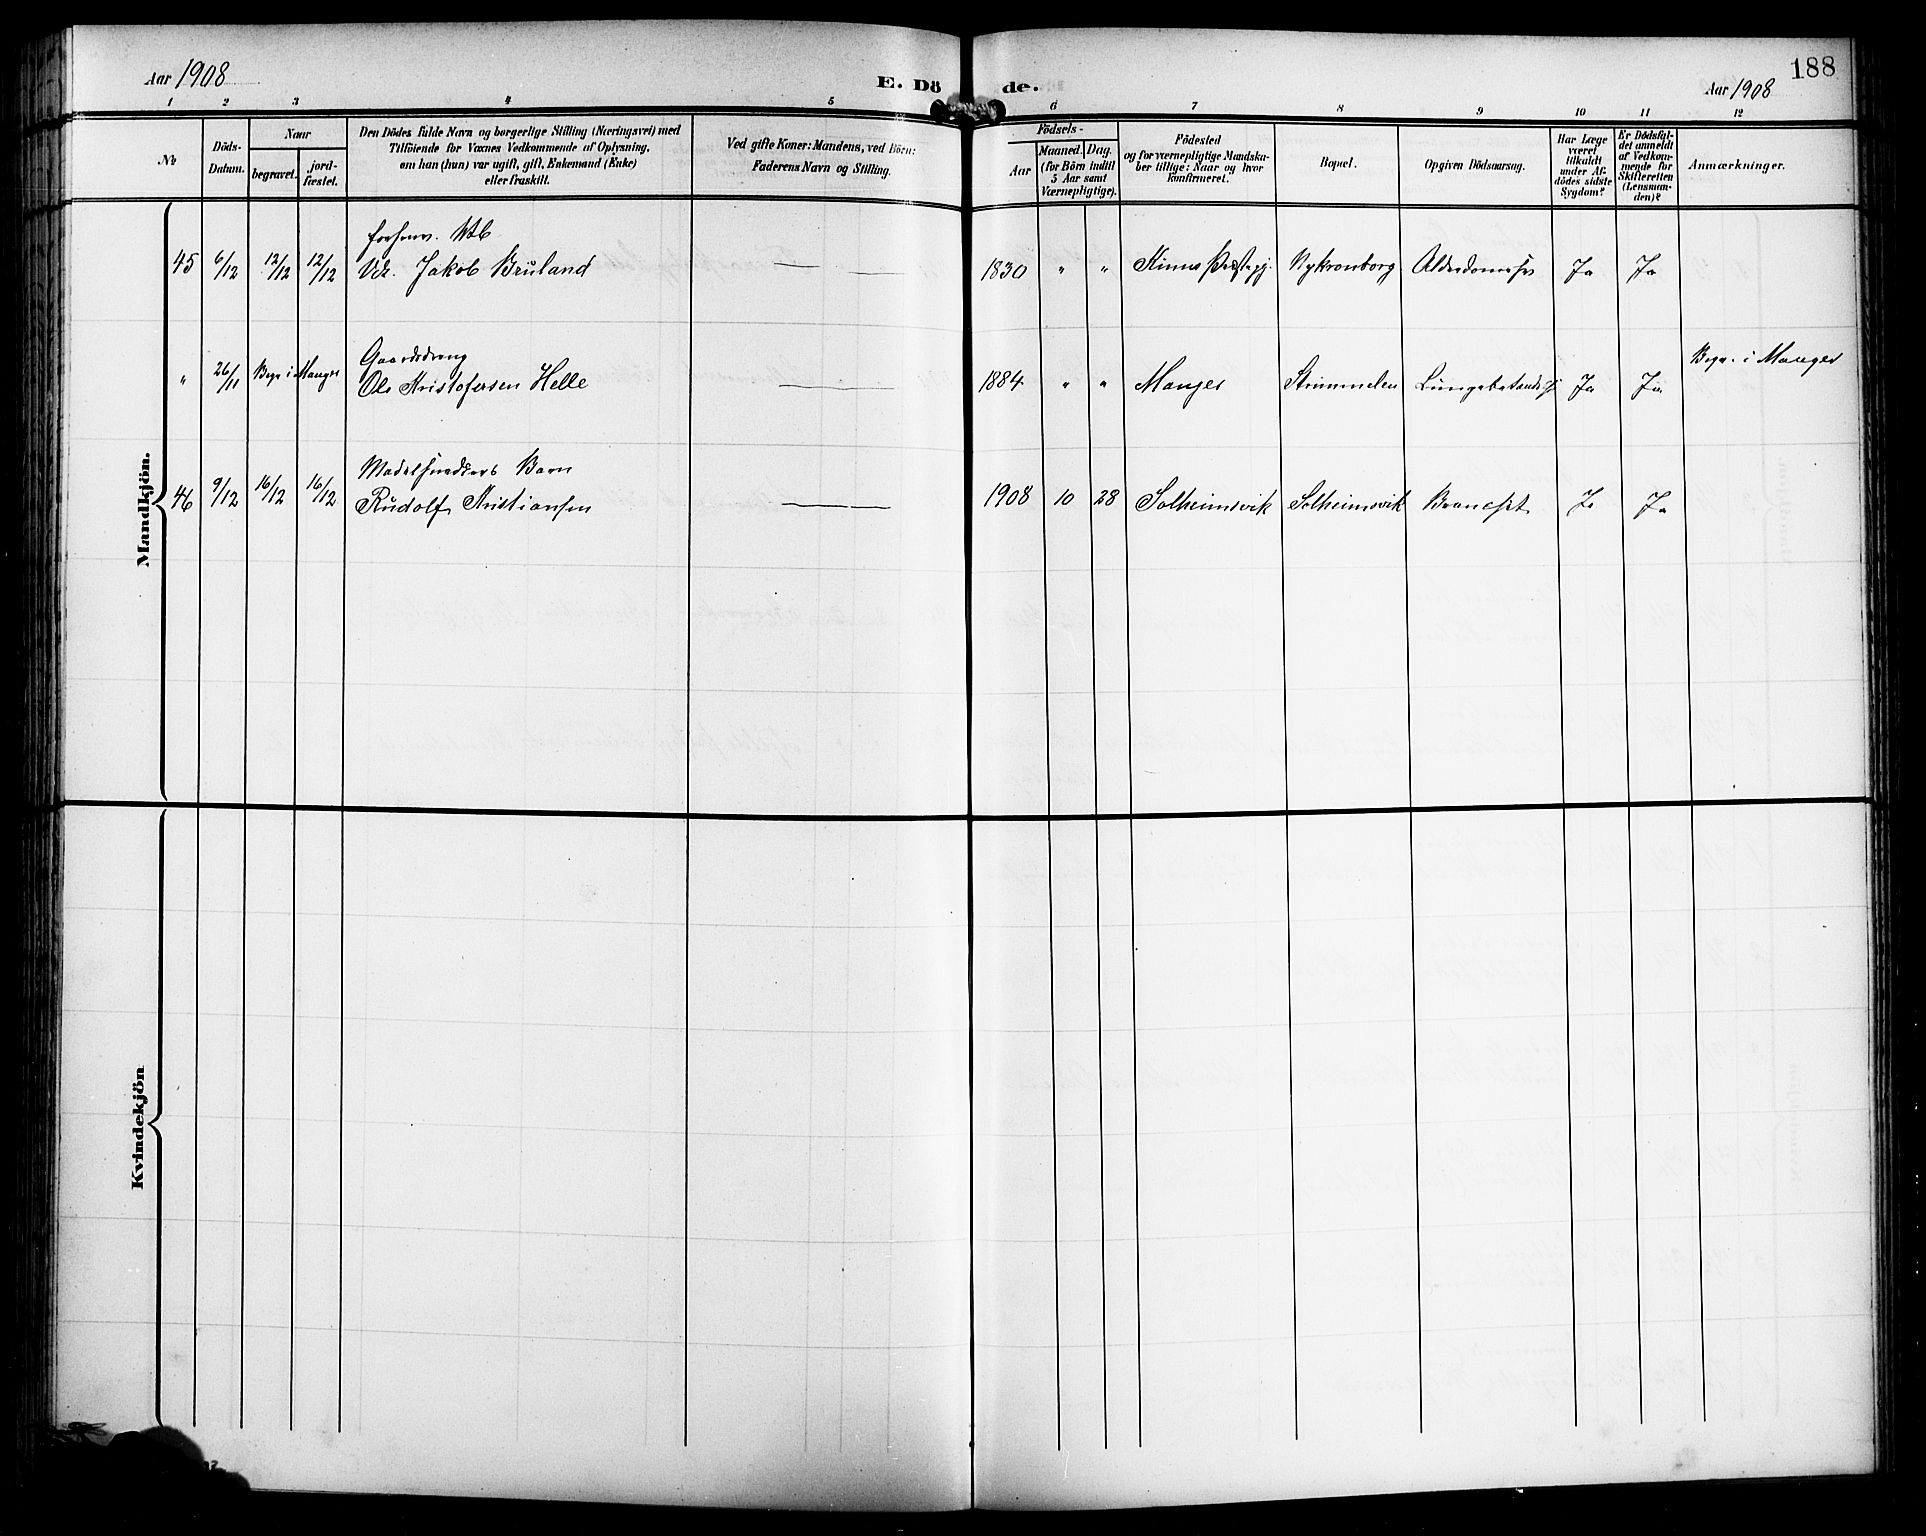 Aar 1908
E. Dö de.
188
Aar 1908
1 2 3 4 5 6 7 8 9 10 11 12
No
Döds-
Datum.
Naar
begravet.
jord-
fæstet.
Den Dödes fulde Navn og borgerlige Stilling (Næringsvei) med
Tilföiende for Voxnes Vedkommende af Oplysning,
om han (hun) var ugift, gift, Enkemand (Enke)
eller fraskilt.
Ved gifte Koner: Mandens, ved Börn:
Faderens Navn og Stilling.
Födsels-
Aar
Maaned. Dag.
(for Börn indtil
5 Aar samt
Værnepligtige).
Födested
og for værnepligtige Mandska-
ber tillige: Naar og hvor
konfirmeret.
Bopæl.
Opgiven Dödsaarsag.
Har Læge
været
tilkaldt
under Af-
dödes sidste
Sygdom?
Er Dödsfal-
det anmeldt
af Vedkom-
mende for
Skifteretten
(Lensman-
den)?
Anmærkninger.
Mandkjön.
45 6/12 12/12 12/12
Jakob Bruland
1830 " " Kinns Præstegj. Nykronborg Ja Ja
" 26/11 Begr. i Manger
Gaardsdreng
Ole Kristofersen Helle
1884 " " Manger Strimmelen Ja Ja Begr. i Manger
46 9/12 16/12 16/12
Barn
Rudolf Kristiansen
1908 10 28 Solheimsvik Solheimsvik Ja Ja
Kvindekjön